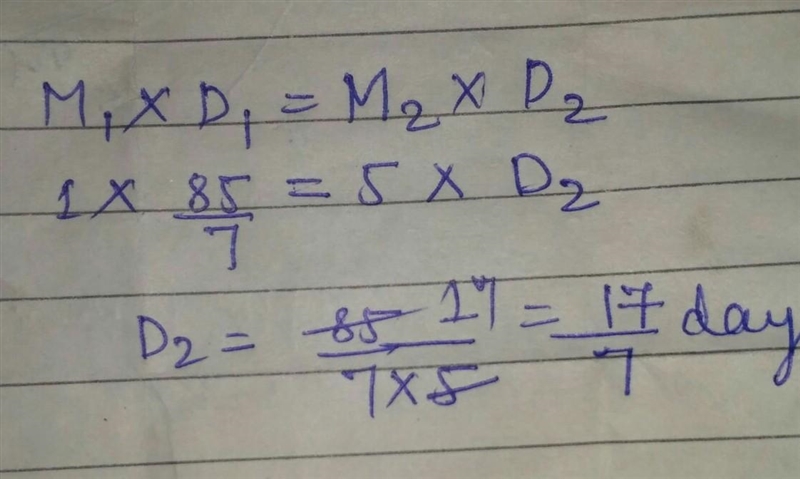 M₁ × D₁ = M₂ × D₂
1 × 85/7 = 5 × D₂
D₂ = 85 17/7×5 = 17/7 day